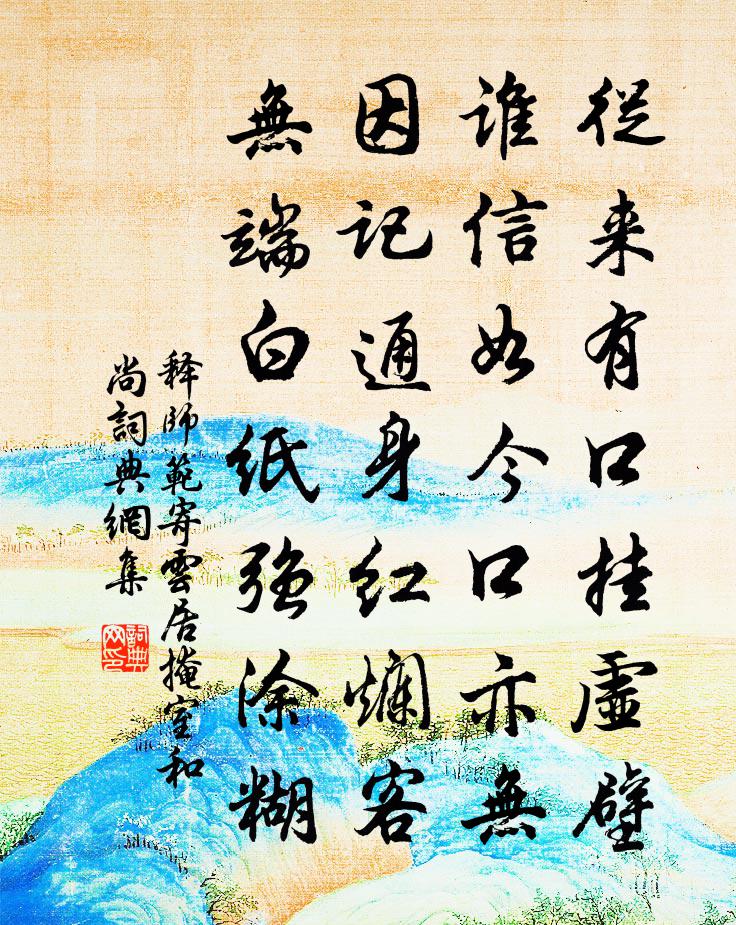 從来有口挂虛壁
谁信如今口亦無
因记通身红爛客
無端白纸強涂糊
释師範寄雲居掩室和
尚詞典網集
詞典
网印